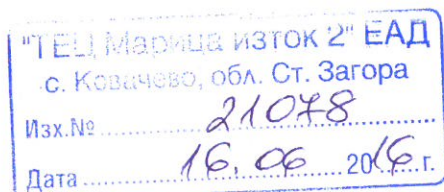 "ТЕЦ Марица изток 2" ЕАД
с. Ковачево, обл. Ст. Загора
Изх.№ 21078
Дата 16.06 2016 г.